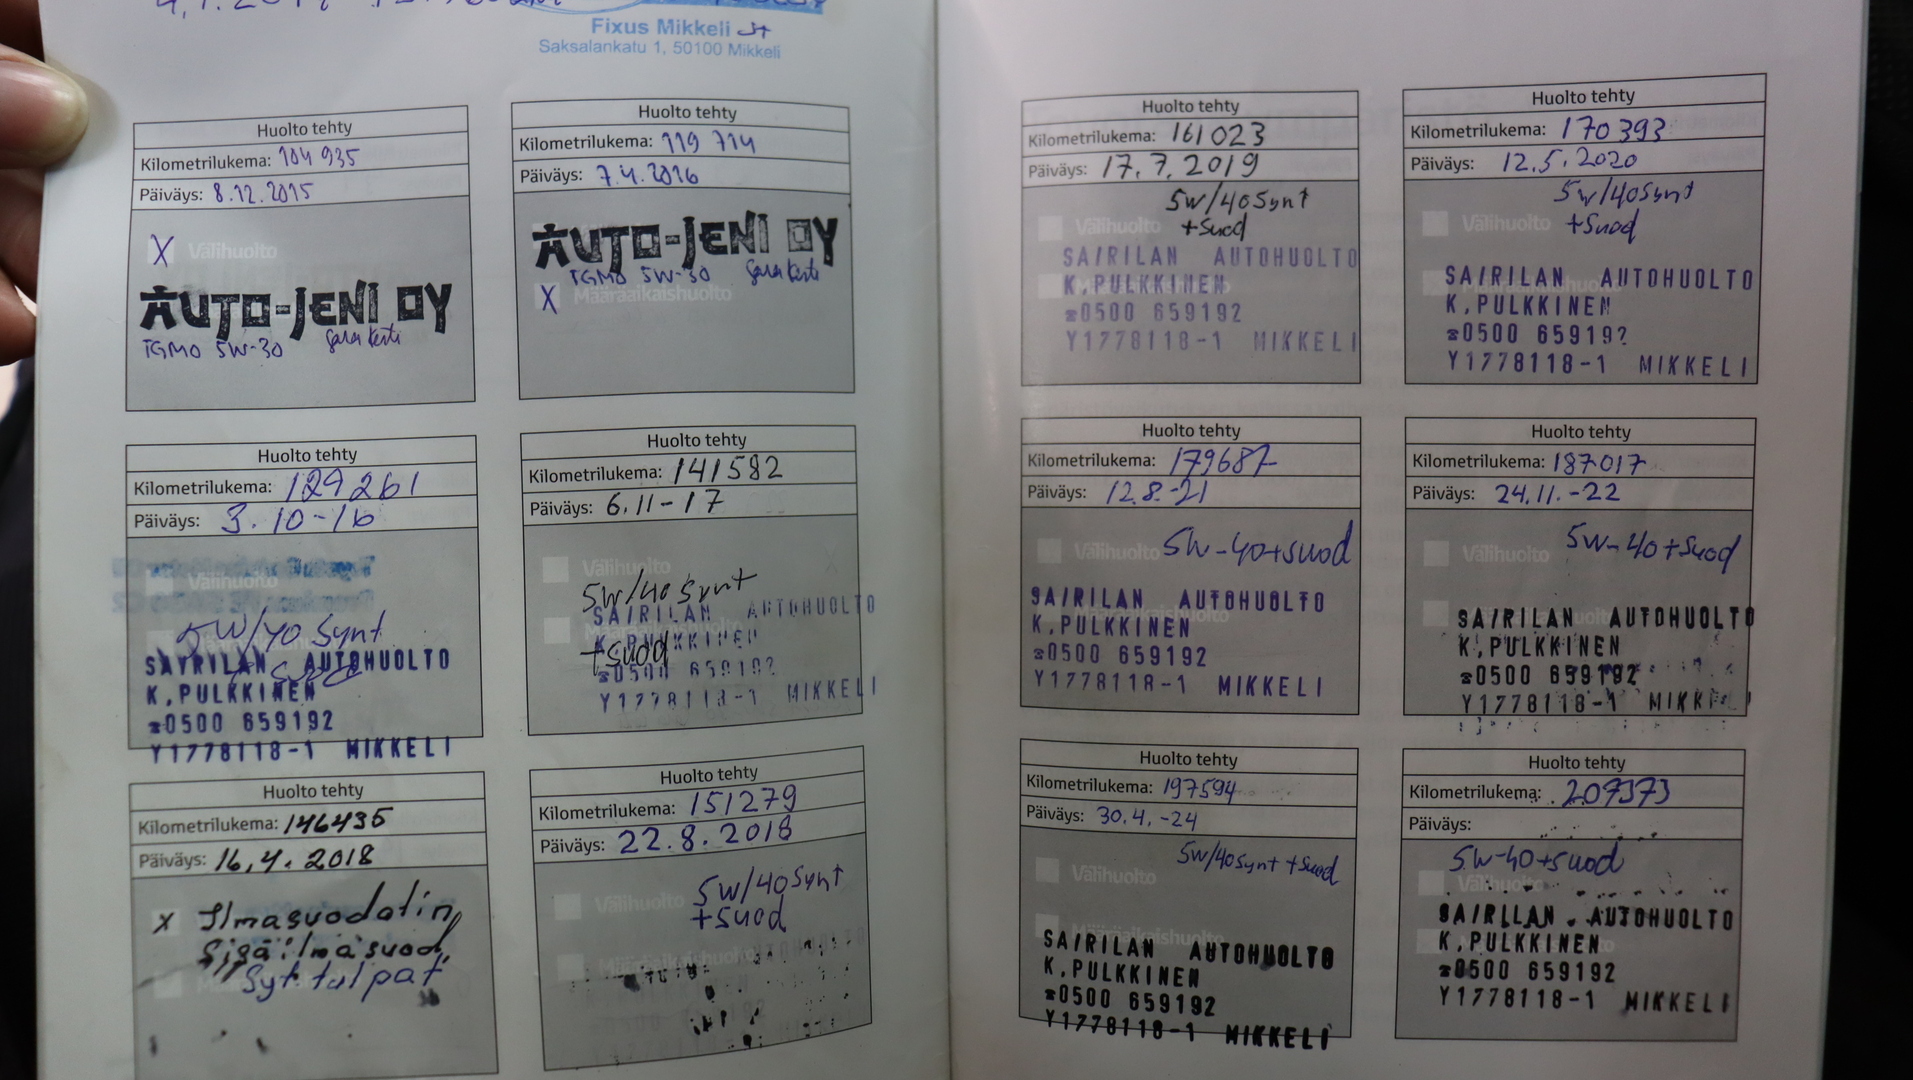 Fixus Mikkeli
Saksalankatu 1, 50100 Mikkeli
Huolto tehty
Kilometrilukema: 104 935
Päiväys: 8.12.2015
X Välihuolto
AUTO-JENI OY
TGMO 5W-30
Huolto tehty
Kilometrilukema: 119 714
Päiväys: 7.4.2016
AUTO-JENI OY
TGMO 5W-30
X Määräaikaishuolto
Huolto tehty
Kilometrilukema: 129261
Päiväys: 3.10-16
Välihuolto
5W/40 Synt
Suod
SAIRILAN AUTOHUOLTO
K.PULKKINEN
☎0500 659192
Y1778118-1 MIKKELI
Huolto tehty
Kilometrilukema: 141582
Päiväys: 6.11-17
Välihuolto
5W/40 Synt
SAIRILAN AUTOHUOLTO
K.PULKKINEN
+suod
☎0500 659192
Y1778118-1 MIKKELI
Huolto tehty
Kilometrilukema: 146435
Päiväys: 16.4.2018
X Ilmasuodatin,
Sisäilmasuod,
Syt.tulpat
Huolto tehty
Kilometrilukema: 151279
Päiväys: 22.8.2018
Välihuolto
5W/40 Synt
+suod
Huolto tehty
Kilometrilukema: 161023
Päiväys: 17.7.2019
5W/40 Synt
Välihuolto +Suod
SAIRILAN AUTOHUOLTO
K.PULKKINEN
☎0500 659192
Y1778118-1 MIKKELI
Huolto tehty
Kilometrilukema: 170393
Päiväys: 12.5.2020
5W/40Synt
Välihuolto +Suod
SAIRILAN AUTOHUOLTO
K.PULKKINEN
☎0500 659192
Y1778118-1 MIKKELI
Huolto tehty
Kilometrilukema: 179687
Päiväys: 12.8.-21
Välihuolto 5W-40+suod
SAIRILAN AUTOHUOLTO
Määräaikaishuolto
K.PULKKINEN
☎0500 659192
Y1778118-1 MIKKELI
Huolto tehty
Kilometrilukema: 187017
Päiväys: 24.11.-22
Välihuolto 5W-40+Suod
SAIRILAN AUTOHUOLTO
K.PULKKINEN
☎0500 659192
Y1778118-1 MIKKELI
Huolto tehty
Kilometrilukema: 197594
Päiväys: 30.4.-24
5W/40Synt +Suod
Välihuolto
Määräaikaishuolto
SAIRILAN AUTOHUOLTO
K.PULKKINEN
☎0500 659192
Y1778118-1 MIKKELI
Huolto tehty
Kilometrilukema: 207373
Päiväys:
5W-40+suod
Välihuolto
SAIRILAN AUTOHUOLTO
K.PULKKINEN
☎0500 659192
Y1778118-1 MIKKELI